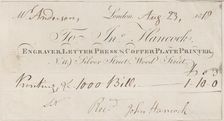 Mr Anderson, London Aug 23, 1818
To Jno. Hancock
ENGRAVER, LETTER PRESS & COPPER PLATE PRINTER,
Silver Street, Wood Street.
Printing 1000 Bills 1 10 0
Recd. John Hancock